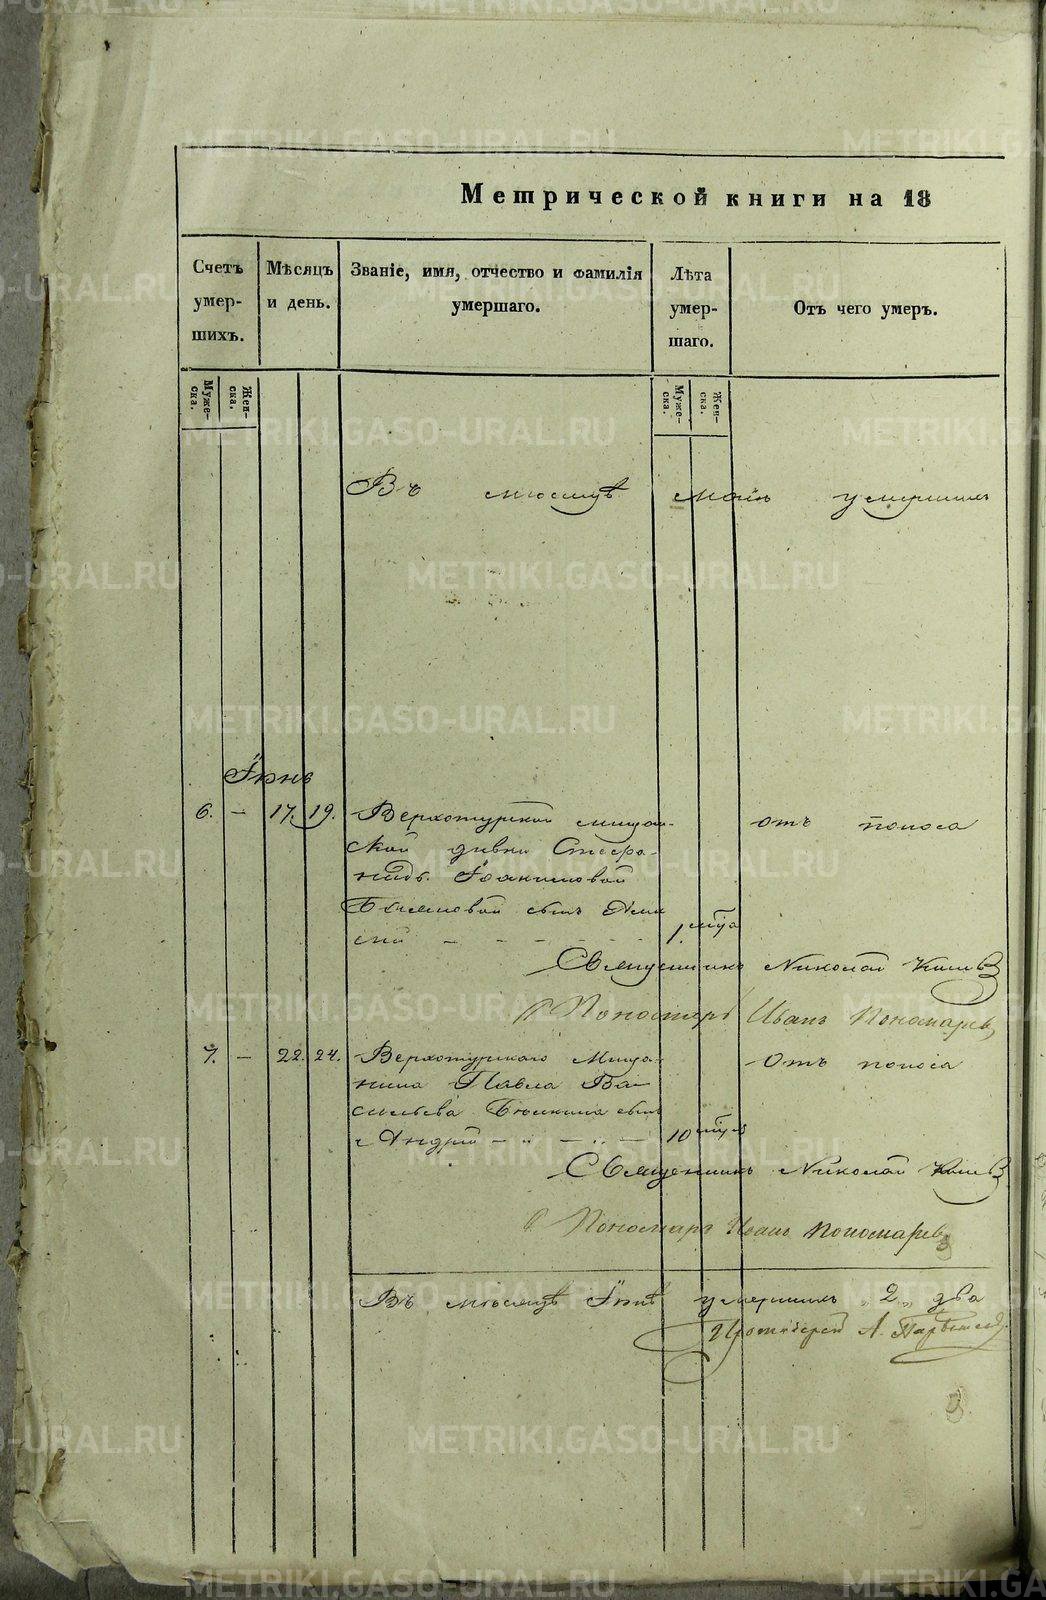 Метрической книги на 18
Счетъ умер-шихъ.
Мѣсяцъ и день.
Званіе, имя, отчество и фамилія умершаго.
Лѣта умер-шаго.
Отъ чего умеръ.
Муже-ска.
Жен-ска.
Муже-ска.
Жен-ска.
Въ мѣсяцѣ маіѣ умершихъ
Іюнь
6. — 17. 19. Верхотурской мѣщан-
ской дѣвки Стефа-
ниды Іоакимовой
сынъ
1.
отъ поноса
Священникъ Николай
Пономарь Иванъ Пономаревъ
7. — 22. 24. Верхотурскаго Мѣща-
нина Павла Ва-
сильева сынъ
Андрей — — —
10
Отъ поноса
Священникъ Николай
Пономарь Иванъ Пономаревъ
Въ мѣсяцѣ Іюнѣ умершихъ „2„ два
Протоіерей А.
METRIKI.GASO-URAL.RU